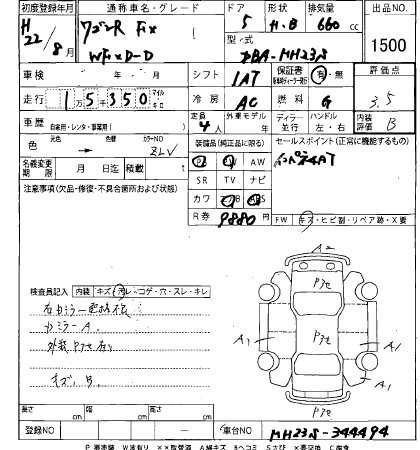 初度登録年月 通称車名・グレード ドア 形状 排気量 出品NO
H22/8月 ワゴンR FX 5 H.B 660cc 1500
WFXD-D 型/式 DBA-MH23S
車検 年 月 シフト 1AT 保証書 有・無 評価点
走行 1 5 350 マイル キロ 冷房 AC 燃料 G 3.5
車歴 自家用・レンタ・事業用( ) 定員 4人 外車モデル ディラー 並行 ハンドル 左・右 内装評価 B
色 元色 → 色替 カラーNO ZLV 装備品(純正品に限る) セールスポイント(正常に機能するもの)
名義変更期限 月 日迄 積載 PS PW AW
注意事項(欠品・修復・不具合箇所および状態) SR TV ナビ
カワ AB ABS
R券 9880円 FW キズ・ヒビ割・リペア跡・X要
A2
検査員記入 内装 キズ・汚レ・コゲ・穴・スレ・キレ Pアセ
右ミラー
左ミラー A.
外装Pアセ有り A1 Pアセ A1
キズ、B. A1
Pアセ
長さ cm 幅 cm 高さ cm
登録NO 車台NO MH23S-344494
P 要塗装 W波有り XX取替済 A線キズ Bヘコミ Sさび X要交換 C腐食